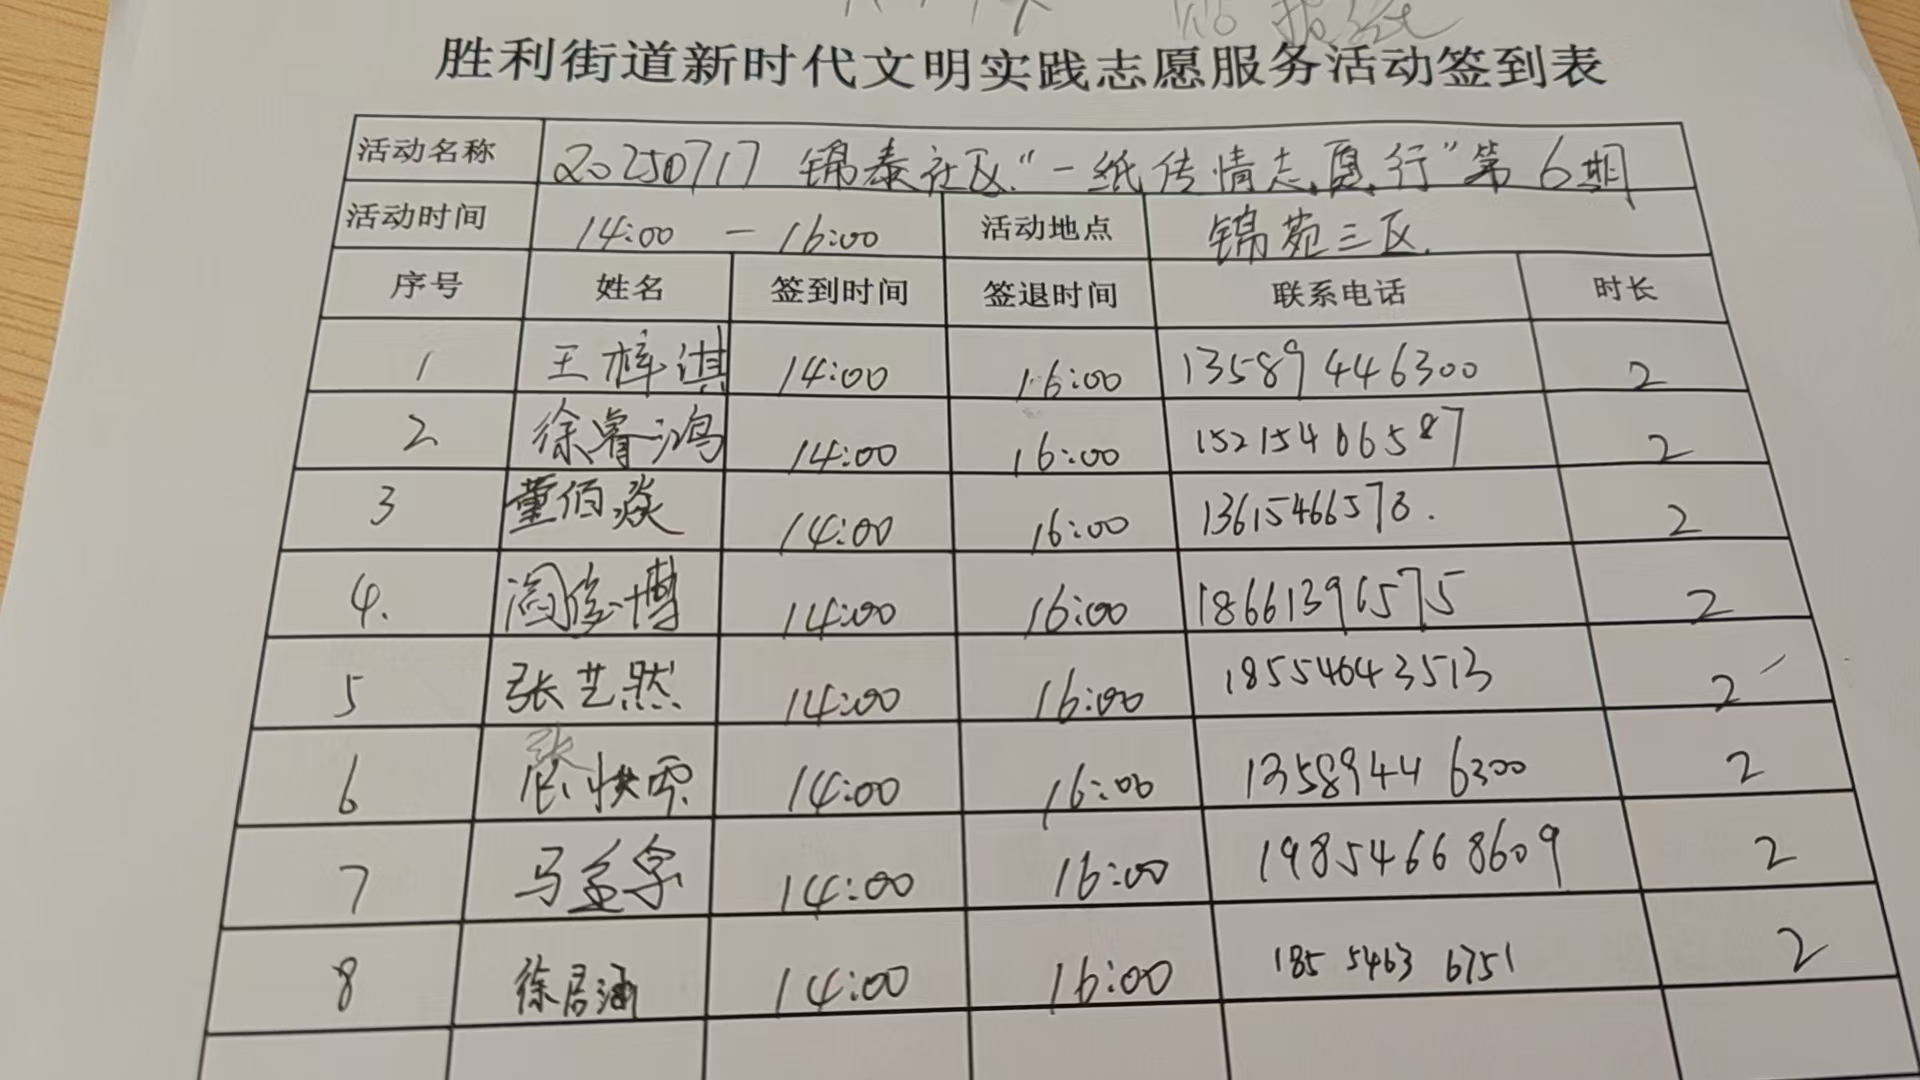 胜利街道新时代文明实践志愿服务活动签到表
活动名称 20250717 锦泰社区“一纸传情志愿行”第6期
活动时间 14:00 — 16:00 活动地点 锦苑三区.
序号 姓名 签到时间 签退时间 联系电话 时长
1 王梓淇 14:00 16:00 13589446300 2
2 徐睿鸿 14:00 16:00 15215406587 2
3 董佰焱 14:00 16:00 2
4. 阎俊博 14:00 16:00 18661396575 2
5 张艺然 14:00 16:00 18554643513 2
6 张 14:00 16:00 13589446300 2
7 马孟字 14:00 16:00 19854668609 2
8 徐君涵 14:00 16:00 185 5463 6751 2